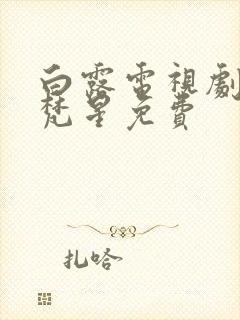 白露電視劇
梵星免費
扎哈